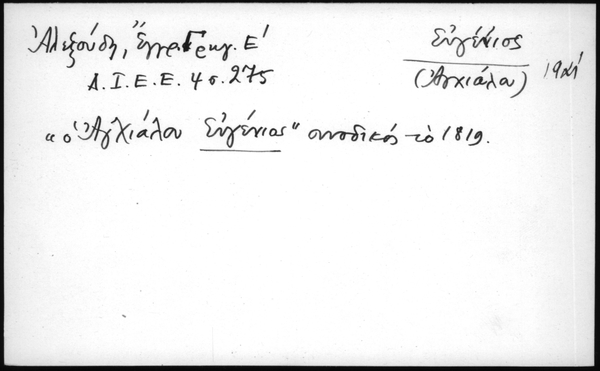 Ἀλεξούδη, Ἔγγρ. Γρηγ. Ε΄
Δ.Ι.Ε.Ε. 4 σ. 275
Εὐγένιος
(Ἀγχιάλου)
"ὁ Ἀγχιάλου Εὐγένιος" συνοδικός τὸ 1819.